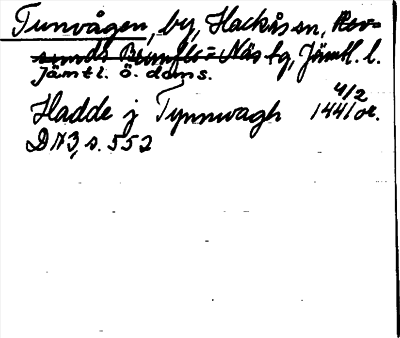 Tunvågen, by, Hackås sn, Rev=
sunds Brunflo=Näs tg, Jämtl. l.
Jämtl. ö. doms.
Hadde j Tynnwagh 4/2 1441 or.
DN3, s. 552